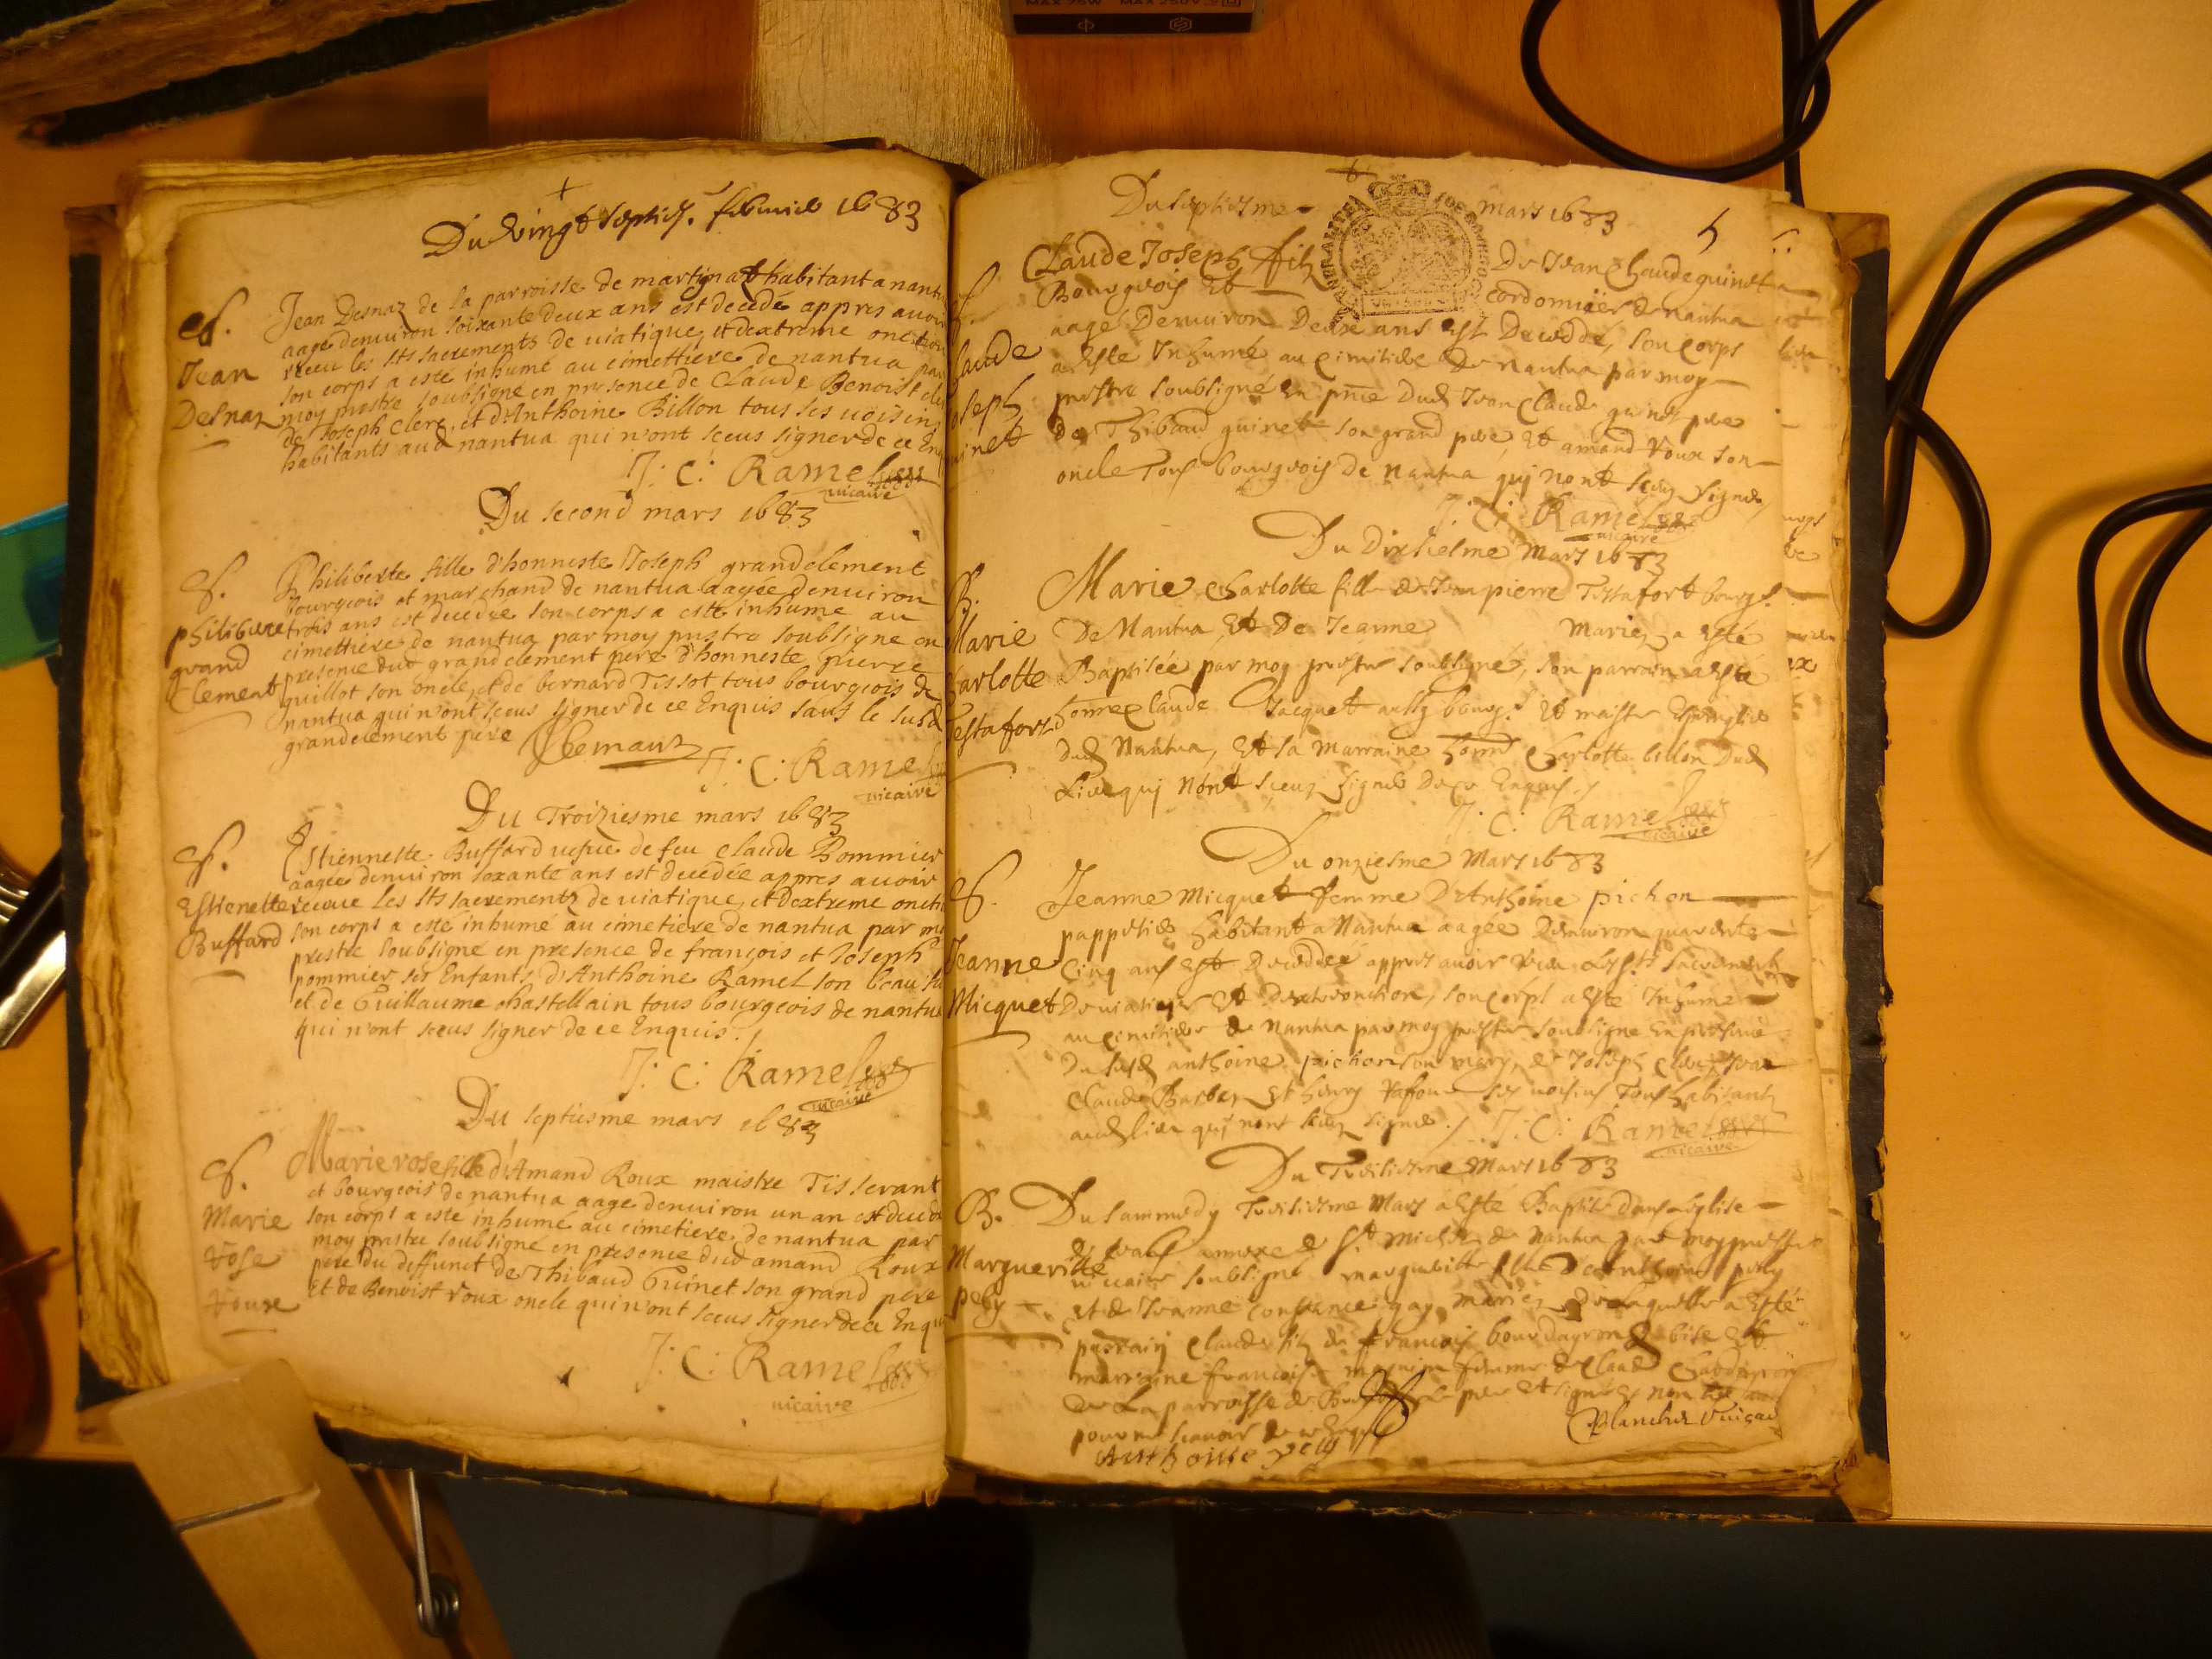 Du vingt septies. febvrier 1683
S. Jean Desnaz
Jean Desnaz de la parroisse de martignat habitant a nantu
aage denuiron soixante deux ans est decedé appres auoir
receu les sts sacrements de uiatique, et dextreme onction
son corps a esté inhumé au cimettiere de nantua par
moy prestre soubsigné en presence de Claude Benoist
de Joseph Clerc, et d'Anthoine Billon tous ses uoisins
habitants aud nantua qui n'ont sceus signer de ce Enq
J: C: Ramel
uicaire
Du second mars 1683
S. philiberte grand Clement
Philiberte fille d'honneste Joseph grandclement
bourgeois et marchand de nantua aagée denuiron
trois ans est decedée son corps a esté inhumé au
cimettiere de nantua par moy prestre soubsigné en
presence dud grandclement pere d'honneste pierre
guillot son oncle, et de bernard Tissot tous bourgeois de
nantua qui n'ont sceus signer de ce Enquis sauf le susd
grandclement pere
J: C: Ramel
uicaire
Du Troiziesme mars 1683
S. Estienette Buffard
Estienette Buffard uefue de feu Claude Pommier
aagée denuiron soxante ans est decedée appres auoir
receue les sts sacrements de uiatique, et dextreme oncti
son corps a esté inhumé au cimetiere de nantua par mo
prestre soubsigné en presence de françois et Joseph
pommier ses Enfants, d'Anthoine Ramel son beau fi
et de Guillaume chastellain tous bourgeois de nantua
qui n'ont sceus signer de ce Enquis.
J: C: Ramel
uicaire
Du septiesme mars 1683
S. Marie rose roux
Marie rose fille d'Amand Roux maistre Tisserant
et bourgeois de nantua aage denuiron un an est deced
son corps a esté inhumé au cimetiere de nantua par
moy prestre soubsigné en presence dud amand Roux
pere du deffunct de Thibaud Guinet son grand pere
et de Benoist roux oncle qui n'ont sceus signer de ce Enqu
J: C: Ramel
uicaire
Du septiesme mars 1683
5
S. laude oseph uinet
Claude Joseph filz De Jean Claude guinet
Bourgeois Et cordonnier de nantua
aagé Denuiron Deux ans est Deceddé, son corps
a esté Inhumé au cimitiere De nantua par moy
prestre soubsigné En pnce Dud Jean Claude guinet pere
de Thibaud guinet son grand pere, Et amand Roux son
oncle Tous bourgeois de nantua qui nont sceuz signer
J: C: Ramel
uicaire
Du Dixhiesme Mars 1683
B. Marie harlotte estafort
Marie Charlotte fille de Jean pierre Testafort bourgs.
De Nantua Et De Jeanne mariez a Esté
Baptisée par moy prestre soubsigné, son parrain a esté
honne Claude Jacquet aussy bourgs. Et maistre
dud Nantua, Et sa marraine Charlotte billon Dud
Lieu qui nont sceuz signer De ce Enquis
J: C: Ramel
uicaire
Du onziesme Mars 1683
S. Jeanne Micquet
Jeanne Micquet femme D'Anthoine pichon
pappetier habitant a Nantua aagée Denuiron quarente
Cinq ans est Deceddée appres auoir receu Les sts sacrements
De uiatique Et Dextreonction, son corps a esté Inhumé
au cimitiere de Nantua par moy prestre soubsigne En presence
Du susd anthoine pichon son mary, de Joseph Clerc, Jean
Claude Barbey, Et henry ses uoisins Tous habitants
aud lieu qui nont sceuz signer
J: C: Ramel
uicaire
Du Treiziesme Mars 1683
B. Margueritte pely
Du sammedy Treiziesme Mars a Esté Baptisé dans Leglise
annexe de St. Michel de Nantua par moy prestre
uiccaire soubsigné margueritte fille D'Anthoine pely
et de Jeanne constance gay mariez De Laquelle a Esté
parrain Claude filz de françois et
marraine françoise femme de Claude
De La parroisse de pere Et signé Et non les
pour ne scauoir de ce Enquis
Anthoine pely